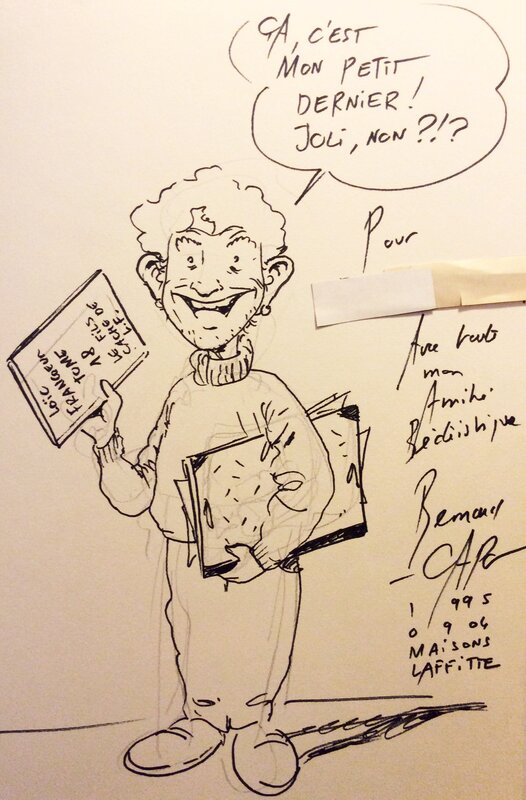 ÇA, C'EST
MON PETIT
DERNIER!
JOLI, NON ?!?
LOÏC
FRANGEUR
TOME
18
LE FILS
CACHÉ DE
L.F.
Pour
Avec toute
mon
Amitié
Bédéistique
Bernard
-CAPO
1 995
0 9 04
MAiSONS
LAFFITTE